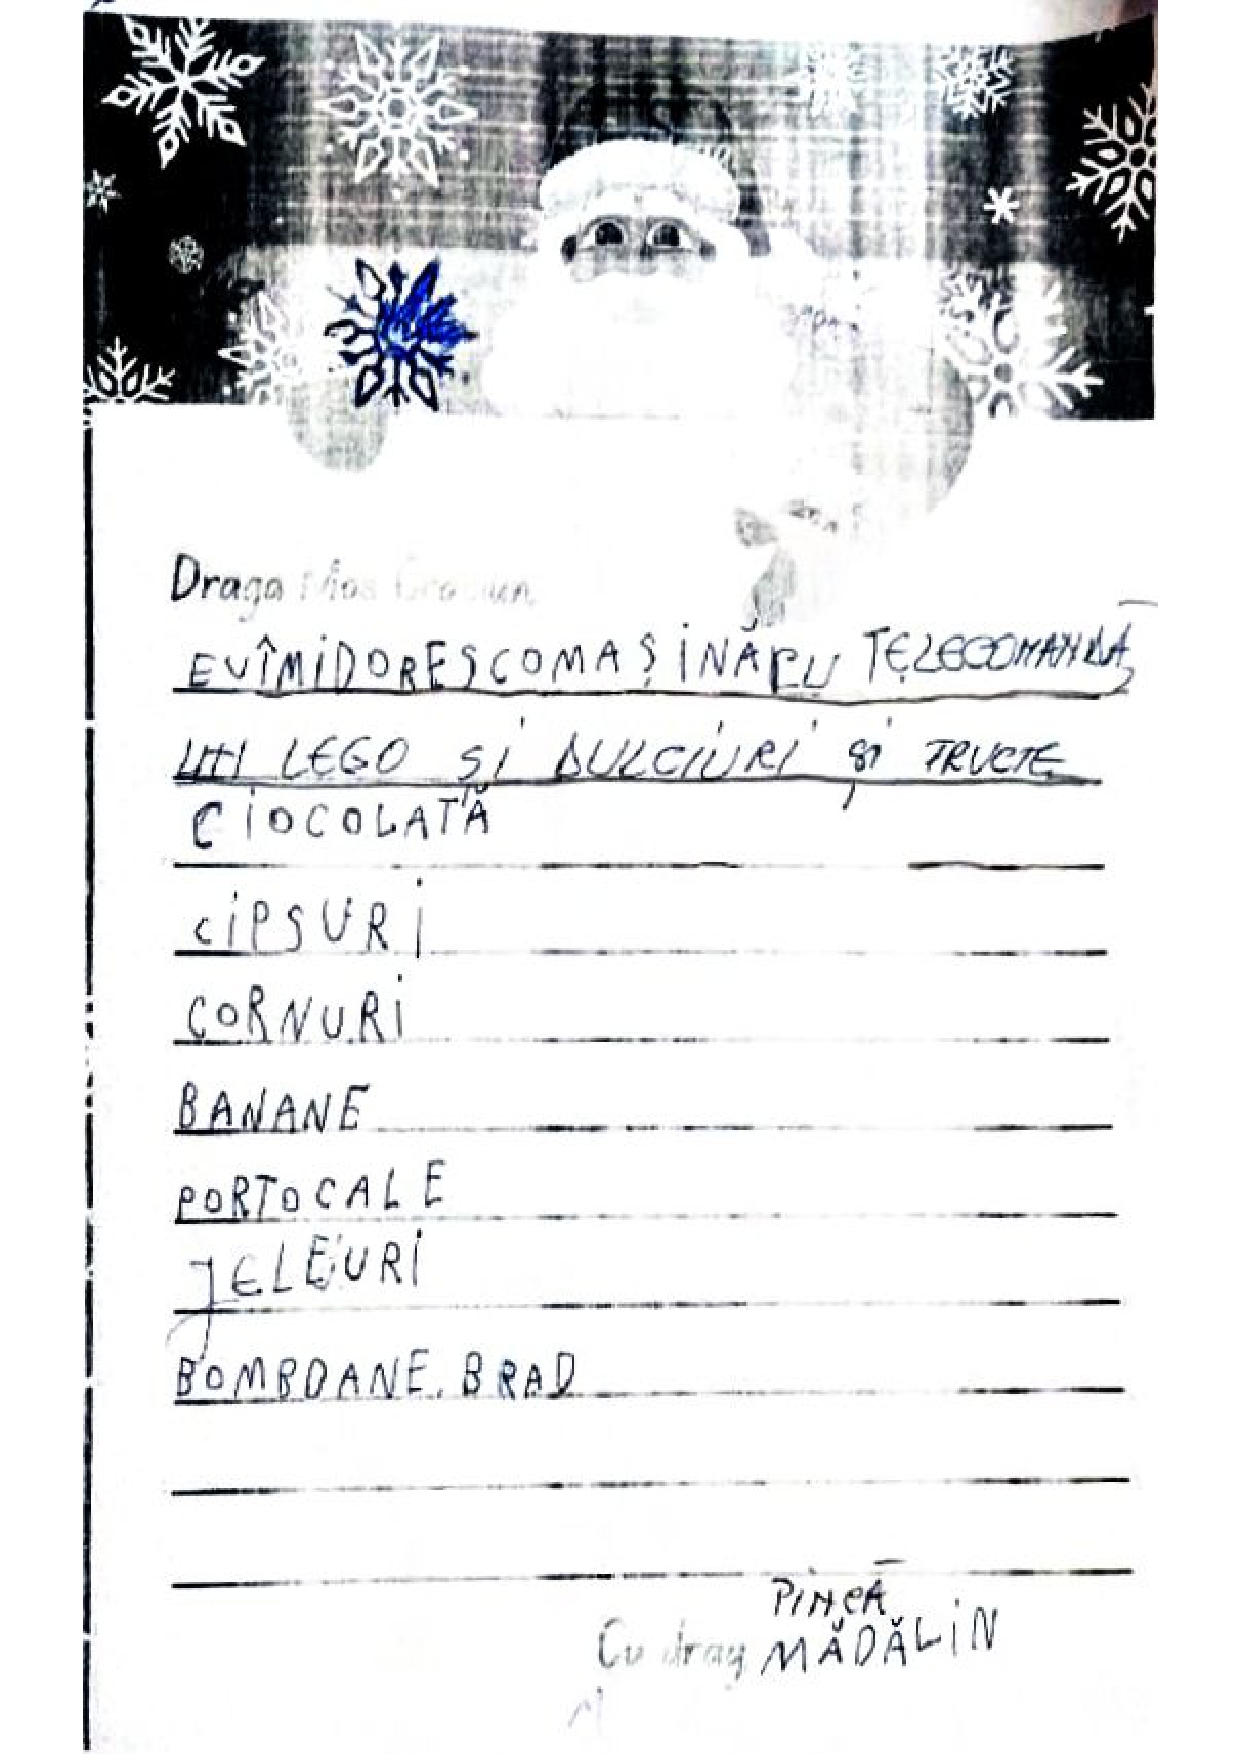 Draga Mos Craciun
EUÎMIDORESCOMAȘINĂCU TELECOMANDĂ,
UN LEGO ȘI DULCIURI ȘI FRUCTE
CIOCOLATĂ
CIPSURI
CORNURI
BANANE
PORTOCALE
JELEURI
BOMBOANE. BRAD
MĂDĂLIN
Cu drag